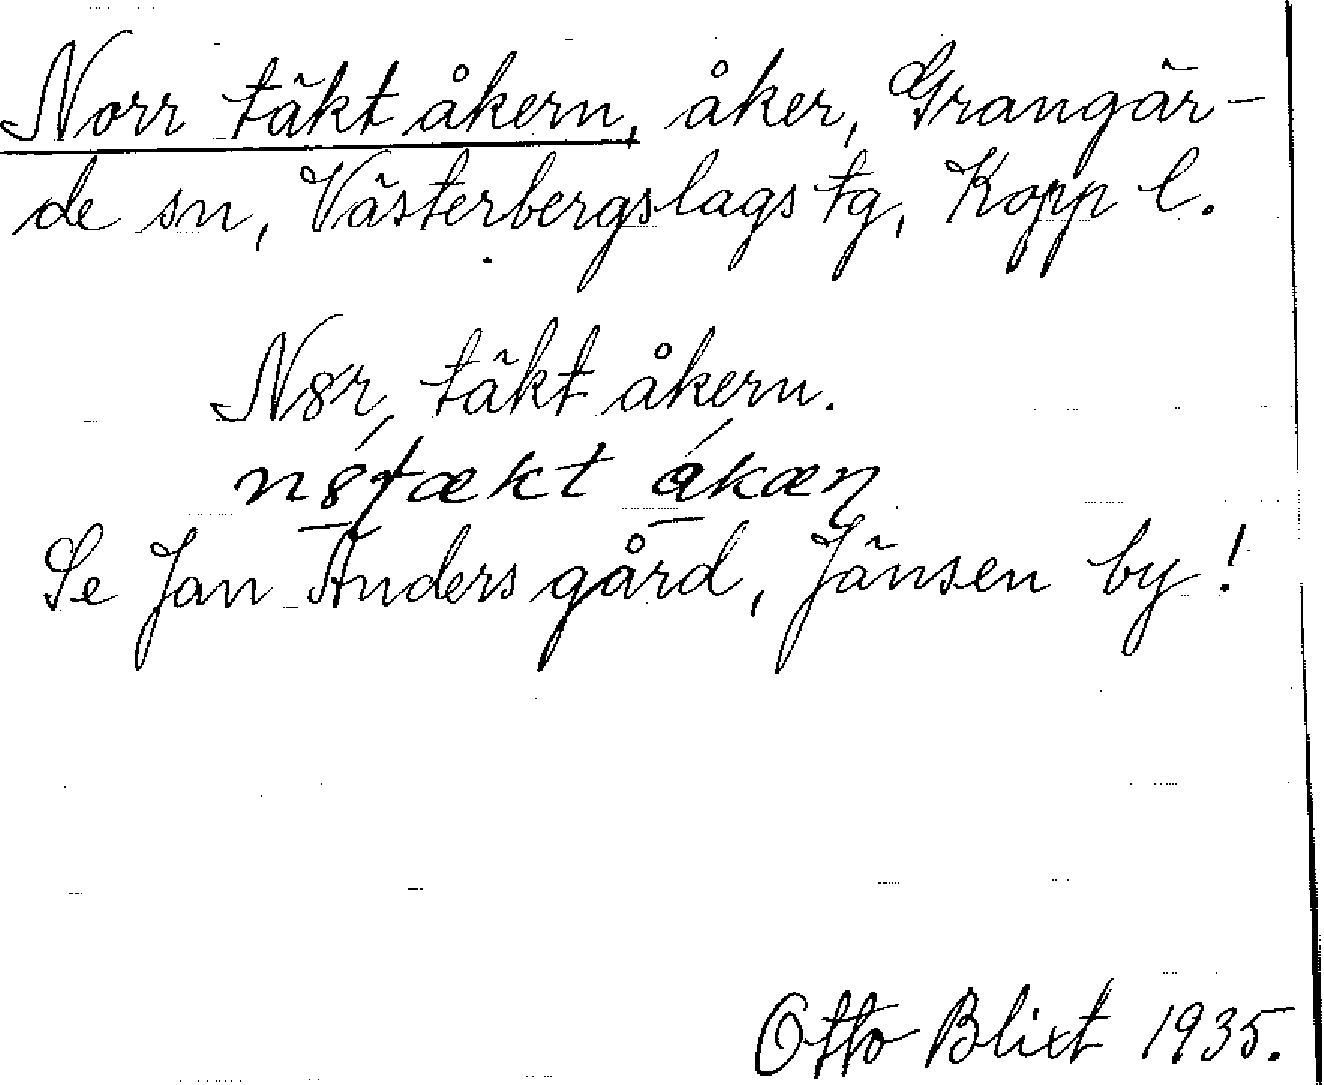 Norr täkt åkern, åker, Grangär-
de sn, Västerbergslags tg, Kopp l.
N8r, täkt åkern.
åkern
Se Jan Anders gård, Jänsen by!
Otto Blixt 1935.